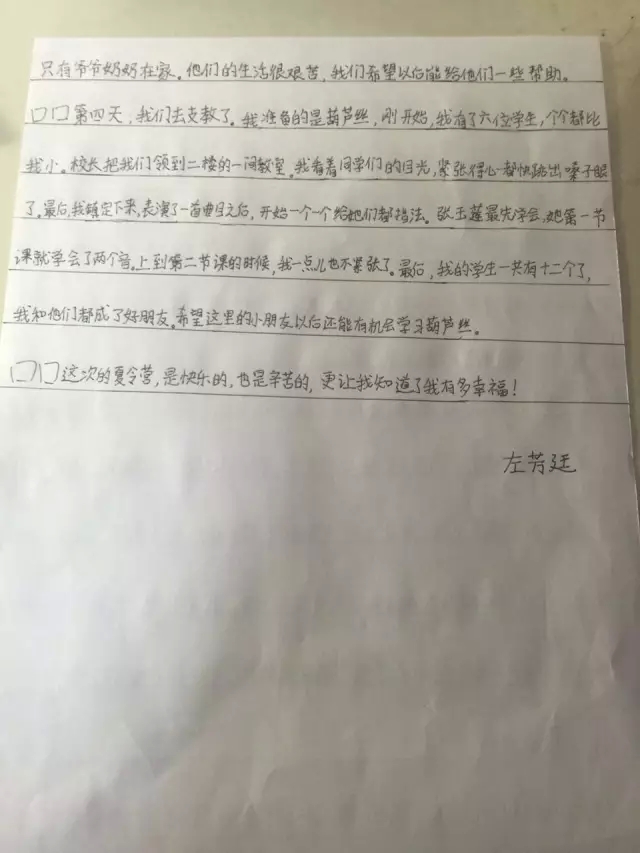 只有爷爷奶奶在家。他们的生活很艰苦，我们希望以后能给他们一些帮助。
口口第四天，我们去支教了。我准备的是葫芦丝，刚开始，我有了六位学生，个个都比
我小。校长把我们领到二楼的一间教室。我看着同学们的目光，紧张得心都快跳出嗓子眼
了。最后，我镇定下来，表演了一首曲目之后，开始一个一个给她们都指法。张玉莲最先学会，她第一节
课就学会了两个音。上到第二节课的时候，我一点儿也不紧张了。最后，我的学生一共有十二个了，
我和他们都成了好朋友。希望这里的小朋友以后还能有机会学习葫芦丝。
口口这次的夏令营，是快乐的，也是辛苦的，更让我知道了我有多幸福！
左芳廷